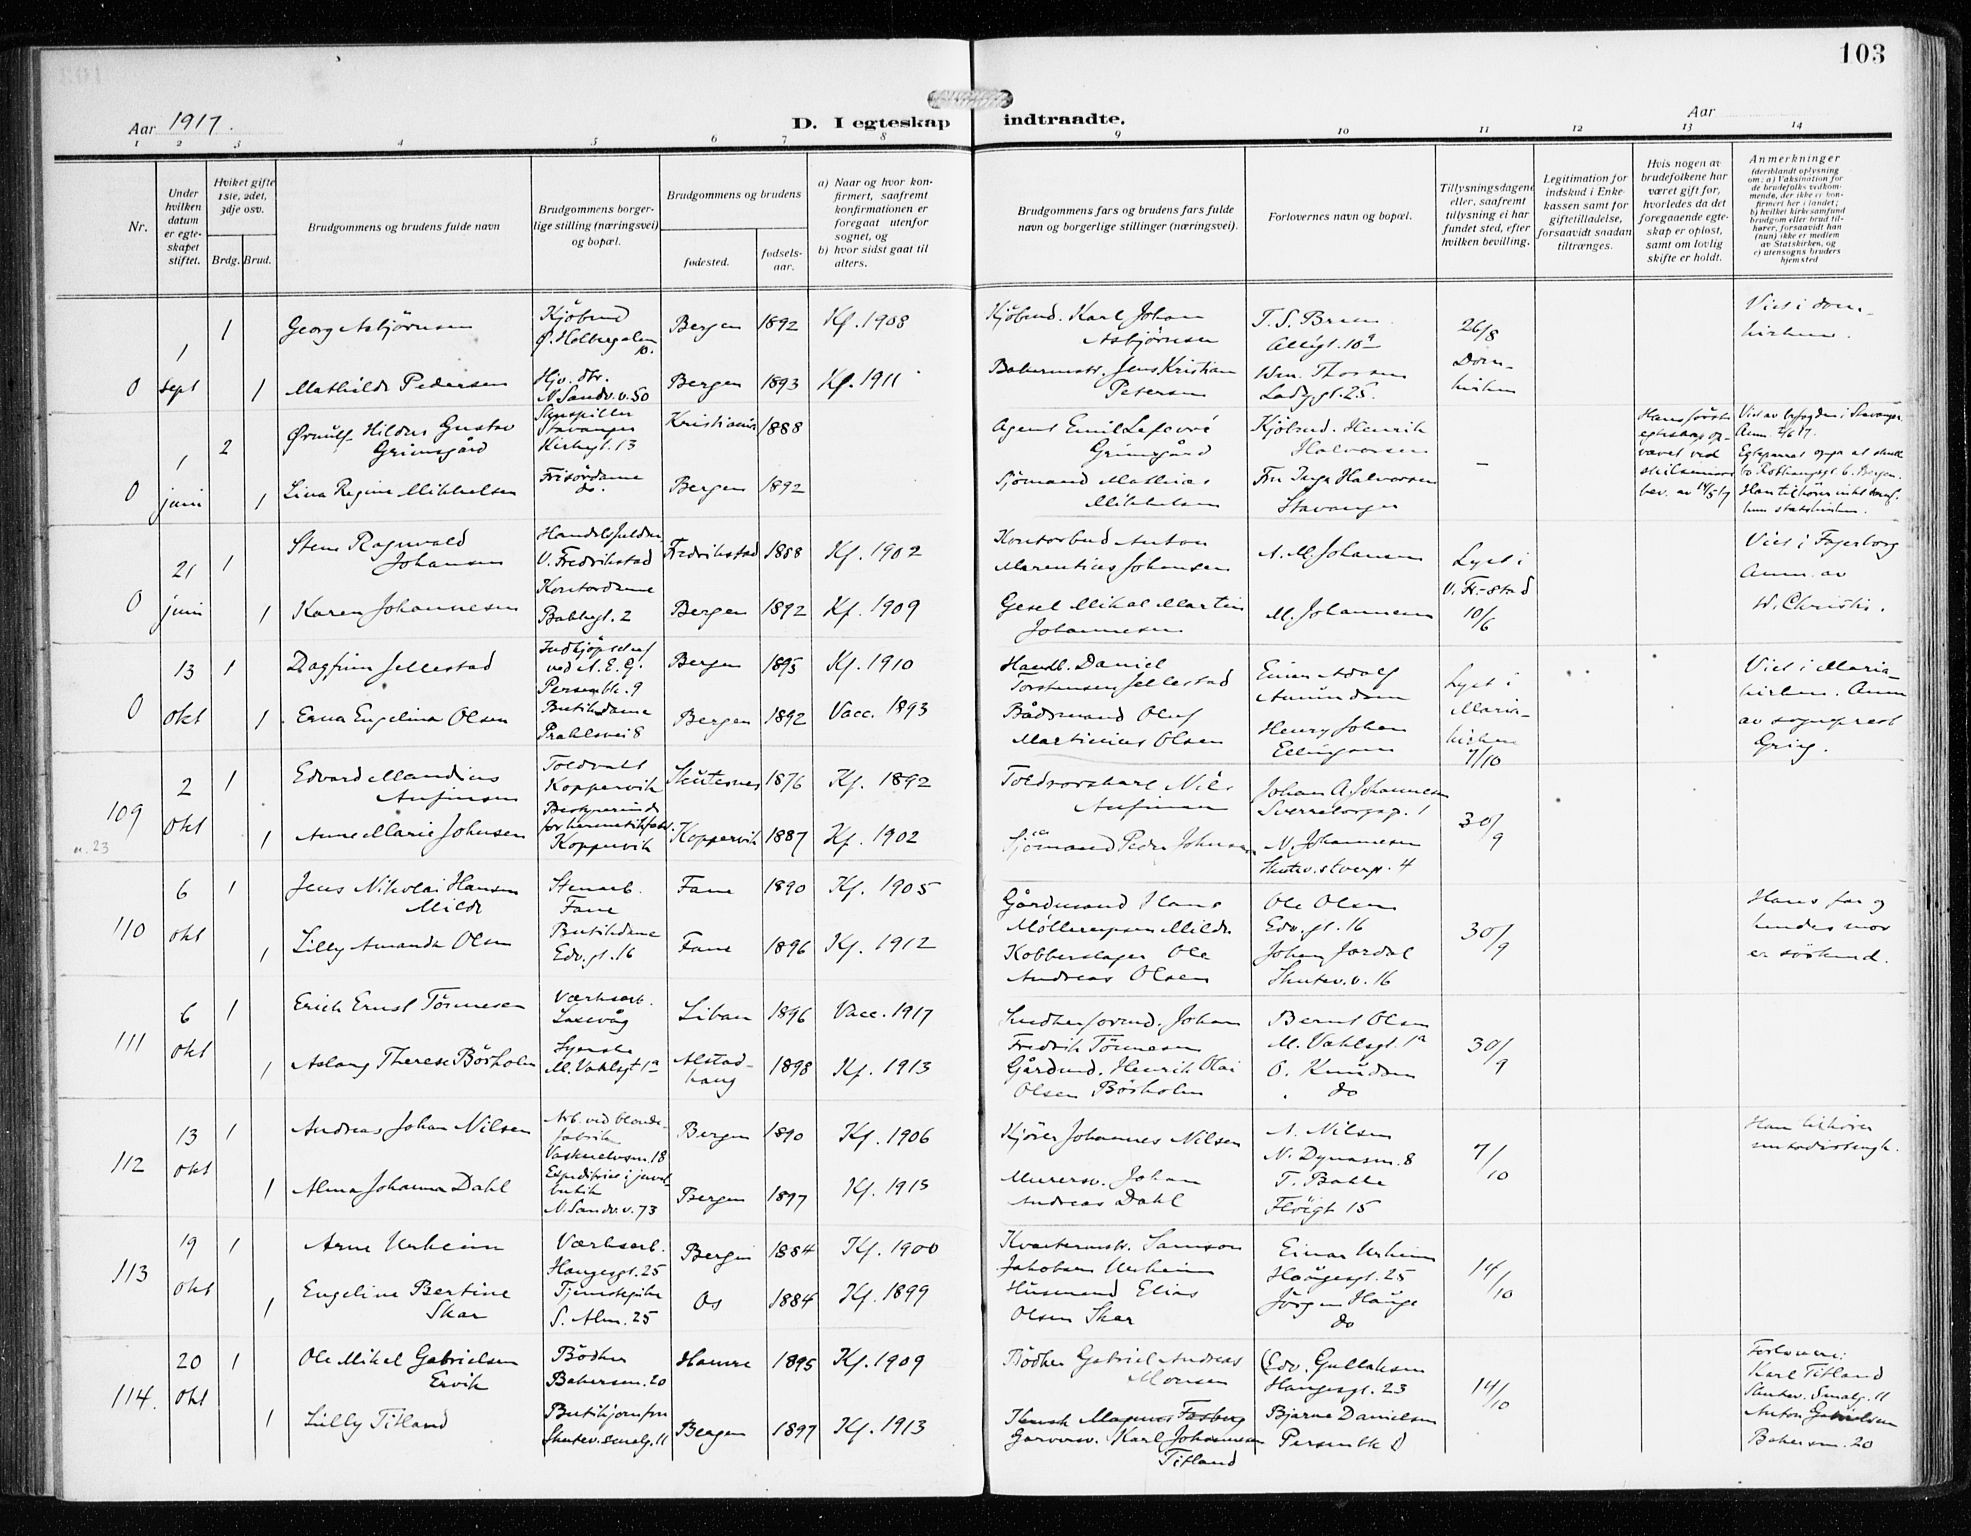 103
Aar 1917.
D. I egteskap indtraadte.
Aar
1 2 3 4 5 6 7 8 9 10 11 12 13 14
Nr.
Under hvilken datum er egteskapet stiftet.
Hvilket gifte 1ste, 2det, 3dje osv.
Brdg. Brud.
Brudgommens og brudens fulde navn
Brudgommens borgerlige stilling (næringsvei) og bopæl.
Brudgommens og brudens
fødested.
fødselsaar.
a) Naar og hvor konfirmert, saafremt konfirmationen er foregaat utenfor sognet, og
b) hvor sidst gaat til alters.
Brudgommens fars og brudens fars fulde navn og borgerlige stillinger (næringsvei).
Forlovernes navn og bopæl.
Tillysningsdagene eller, saafremt tillysning ei har fundet sted, efter hvilken bevilling.
Legitimation for indskud i Enkekassen samt for giftetilladelse, forsaavidt saadan tiltrænges.
Hvis nogen av brudefolkene har været gift før, hvorledes da det foregaaende egteskap er opløst, samt om lovlig skifte er holdt.
Anmerkninger
(deriblandt oplysning om: a) Vaksination for de brudefolks vedkommende, der ikke er konfirmert her i landet; b) hvilket kirkesamfund brudgom eller brud tilhører, forsaavidt han (hun) ikke er medlem av Statskirken, og c) utensogns bruders hjemsted
0 1 sept 1 Georg Asbjørnsen Kjøbmd Ø. Holbegalm 10. Bergen 1892 Kf. 1908 Kjøbmd. Karl Johan Asbjørnsen T. S. Bruun Allégt. 10a 26/8 Domkirken Viet i domkirken.
1 Mathilde Pedersen N. Sandv.v. 50 Bergen 1893 Kf. 1911 Jens Kristian Petersen Wm. Thorsen Ladegt. 25.
0 1 juni 2 Ørnulf Hildus Gustav Grimsgård Skuespiller Stavanger Kirkegt. 13 Kristiania 1888 Agent Emil Lefevré Grimsgård Kjøbmd. Henrik Halvorsen – Hans første egteskap opvævet ved skilsmisse bev. av 14/5 17 Viet av byfogden i Stavanger. Anm. 2/6 17.
1 Lina Regine Mikkelsen Frisørdame do. Bergen 1892 Sjømand Mathias Mikkelsen Fru Inga Halvorsen Stavanger
0 21 juni 1 Sten Ragnvald Johansen V. Fredrikstad Fredrikstad 1888 Kf. 1902 Kontorbud Anton Marentius Johansen A. M. Johansen Lyst i V. Fr.-stad 10/6 Viet i Fagerborg Anm. av W. Christie.
1 Karen Johannesen Kontordame Bakkegt. 2 Bergen 1892 Kf. 1909 Gesel Mikal Martin Johannesen M. Johannesen
0 13 okt 1 Dagfinn Jellestad Indkjøpschef ved A. E. G. Persenbk. 9 Bergen 1895 Kf. 1910 Handl. Daniel Torstensen Jellestad Einar Adolf Amundsen Lyst i Mariakirken 7/10 Viet i Mariakirken. Anm av sogneprest Grieg.
1 Erna Engelina Olsen Butikdame Prahlsvei 8 Bergen 1892 Vacc. 1893 Bådsmand Oluf Martinius Olsen Henry Johan Ellingsen
109 2 okt 1 Edvard Mandius Anfinsen Toldvakt Koppervik Skutesnes 1876 Kf. 1892 Toldrorskarl Nils Anfinsen Johan A. Johannesen Sverretorgsp. 1 30/9
n. 23 1 Anne Marie Johnsen Bestyrerinde for hermetikfabr. Koppervik Koppervik 1887 Kf. 1902 Sjømand Peder Johnsen N. Johannesen Skutev. stverp. 4
110 6 okt 1 Jens Nikolai Hansen Milde Stenarb. Fane Fane 1890 Kf. 1905 Gårdmand Hans Møllerupsen Milde Ole Olsen Edv. gt. 16 30/9 Hans far og hendes mor er søskend.
1 Lilly Amanda Olsen Butikdame Edv. gt. 16 Fane 1896 Kf. 1912 Kobberslager Ole Andreas Olsen Johan Jordal Skutev. v. 16
111 6 okt 1 Erich Ernst Tönnesen Værksarb. Laxevåg Libau 1896 Vacc. 1917 Johan Fredrik Tönnesen Bernt Olsen M. Vahlsgt. 1a 30/9
1 Aslaug Therese Børsholm Syerske M. Vahlsgt 1a Alstadhaug 1898 Kf. 1913 Gårdmd. Henrik Olai Olsen Børsholm O. Knudsen do
112 13 okt 1 Andreas Johan Nilsen Arb. ved blondefabrik Vaskerelvsm. 18 Bergen 1890 Kf. 1906 Kjører Johannes Nilsen A. Nilsen N. Dynasm. 8 7/10 Han tilhører metodistmgh.
1 Alma Johanna Dahl butik N. Sandv. v. 73 Bergen 1897 Kf. 1913 Murersv. Johan Andreas Dahl T. Bakke Fløigt 15
113 19 okt 1 Arne Urheim Værksarb. Haugesgt. 25 Bergen 1884 Kf. 1900 Kvartermstr. Samson Jakobsen Urheim Einar Urheim Haugesgt. 25 14/10
1 Engeline Bertine Skar Tjenestepike S. Alm. 25 Os 1884 Kf. 1899 Husmand Elias Olsen Skar Jörgen Hauge do
114. 20 okt 1 Ole Mikal Gabrielsen Ervik Bødker Bakersm. 20 Hamre 1895 Kf. 1909 Bødker Gabriel Andreas Monsen Edv. Gullaksen Haugesgt. 23 14/10 Forlovere: Karl Titland Skutev. Smalg. 11 Anton Gabrielsen Bakersm. 20
1 Lilly Titland Butikjomfru Skutev. smalg. 11 Bergen 1897 Kf. 1913 Magnus Fosberg Garversv. Karl Johannesen Titland Bjarne Danielsen Persenbk